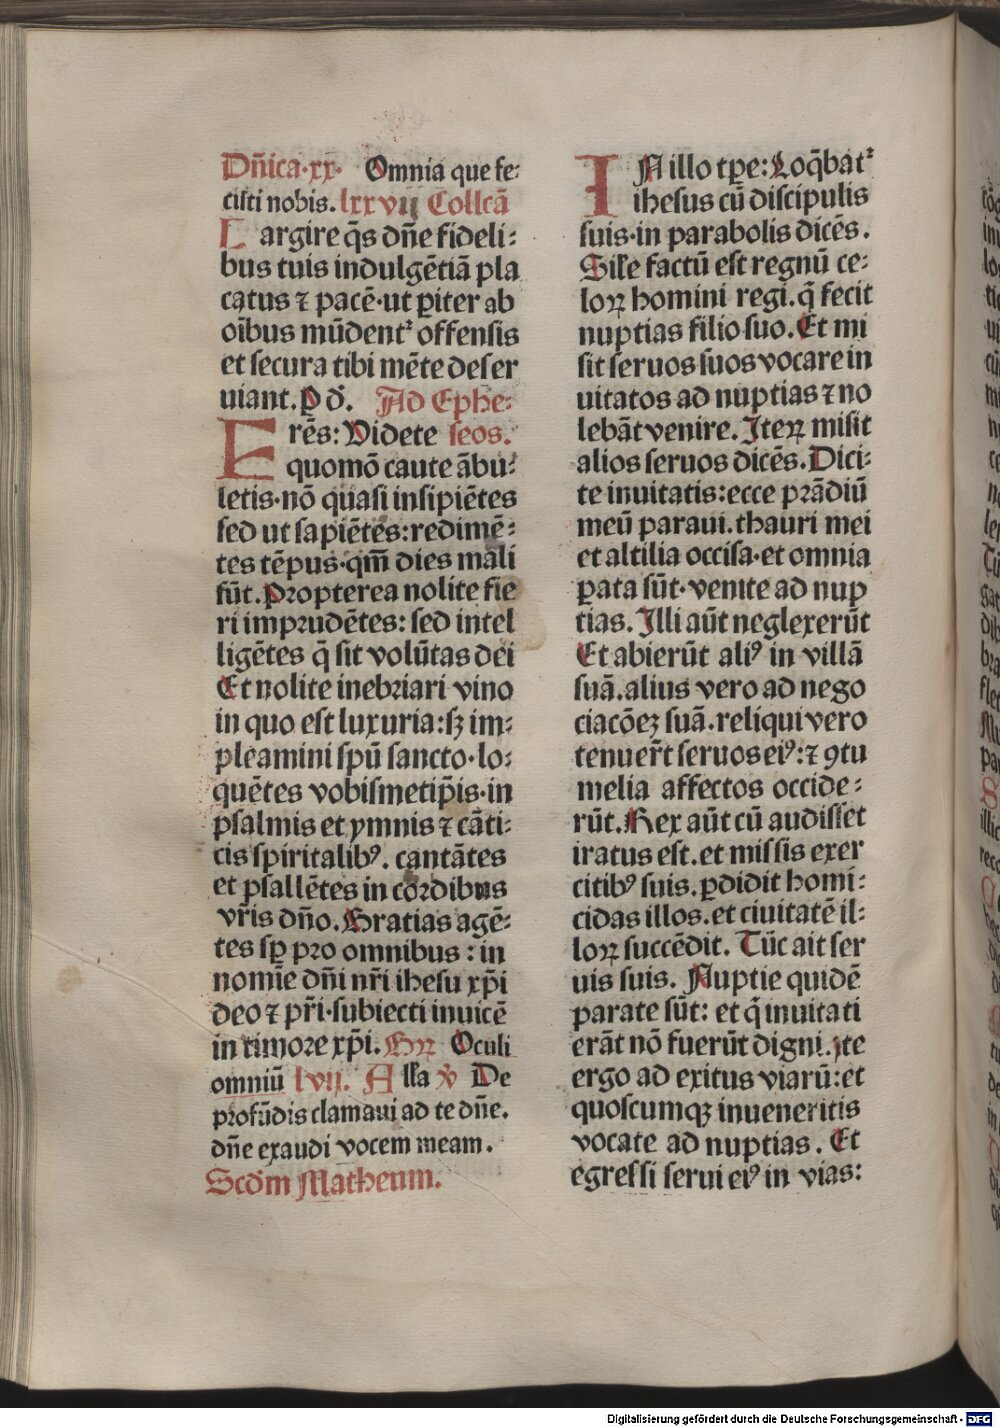 Dn̄ica·xx· Omnia que fe⸗
cisti nobis. lxxvij Collc̄a
Largire q̄s dn̄e fideli⸗
bus tuis indulgētiā pla
catus ⁊ pacē·ut ꝑiter ab
oībus mūdentᷣ offensis
et secura tibi mēte deser
uiant. P d̄. Ad Ephe⸗
Fr̄es: Videte seos.
quomō caute ābu⸗
letis·nō quasi insipiētes
sed ut sapiētes: redimē⸗
tes tēpus·qm̄ dies mali
sūt. Propterea nolite fie
ri imprudētes: sed intel
ligētes q̄ sit volūtas dei
Et nolite inebriari vino
in quo est luxuria: sꝫ im⸗
pleamini spū sancto·lo⸗
quētes vobismetip̄is·in
psalmis et ymnis ⁊ cāti⸗
cis spiritalibꝰ. cantātes
et psallētes in cordibus
vr̄is dn̄o. Gratias agē⸗
tes sp̄ pro omnibus: in
nomīe dn̄i nr̄i ihesu xp̄i
deo ⁊ pr̄i·subiecti inuicē
in timore xp̄i. Grꝝ Oculi
omniū lvij. Alla ꝟ De
profūdis clamaui ad te dn̄e.
dn̄e exaudi vocem meam.
Scd̄m Matheum.
IN illo tp̄e: Loq̄batᷣ
ihesus cū discipulis
suis·in parabolis dicēs.
Sile factū est regnū ce⸗
loꝝ homini regi. q̄ fecit
nuptias filio suo. Et mi
sit seruos suos vocare in
uitatos ad nuptias ⁊ no
lebāt venire. Iteꝝ misit
alios seruos dicēs. Dici⸗
te inuitatis: ecce prādiū
meū paraui. thauri mei
et altilia occisa·et omnia
ꝑata sūt· venite ad nup
tias. Illi aūt neglexerūt
Et abierūt aliꝰ in villā
suā. alius vero ad nego
ciacōeꝫ suā. reliqui vero
tenuer̄t seruos eiꝰ: ⁊ ꝯtu
melia affectos occide⸗
rūt. Rex aūt cū audisset
iratus est. et missis exer
citibꝰ suis. ꝑdidit homi⸗
cidas illos. et ciuitatē il⸗
loꝝ succēdit. Tūc ait ser
uis suis. Nuptie quidē
parate sūt: et q̄ inuitati
erāt nō fuerūt digni. Ite
ergo ad exitus viarū: et
quoscumqꝫ inueneritis
vocate ad nuptias. Et
egressi serui eiꝰ in vias:
Digitalisierung gefördert durch die Deutsche Forschungsgemeinschaft - DFG